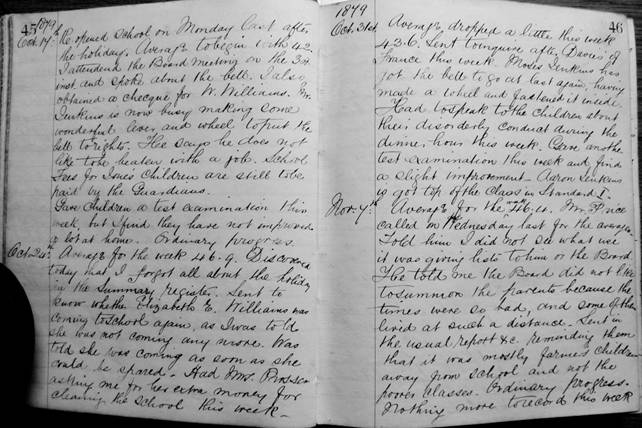 45
1879
Oct. 17th Re opened School on Monday last after
the holidays. Average to begin with 42.
I attended the Board Meeting on the 3rd
inst and spoke about the bell. I also
obtained a checque for W. Williams. Mr.
Jenkins is now busy making some
wonderful lever, and wheel to put the
bell to rights. He says he does not
like to be beaten with a job. School
Fees for Children are still to be
paid by the Guardians.
Gave Children a test examination this
week, but I find they have not improved
a bit at home. Ordinary progress.
Oct. 24th Average for the week 46.9. Discovered
today that I forgot all about the holiday
in the Summary register. Sent to
know whether Elizabeth E. Williams was
coming to school again, as I was told
she was not coming any more. Was
told she was coming as soon as she
could be spared. Had Mrs. Prosser
asking me for her extra money for
cleaning the school this week.
46
1879
Oct. 31st Average dropped a little this week
42.6. Sent to inquire after Davies of
France this week. Moses Jenkins has
got the bell to go at last again, having
made a wheel and fastened it inside.
Had to speak to the Children about
their disorderly conduct during the
dinner hour this week. Gave another
test examination this week and find
a slight improvement. Aaron Jenkins
is got top of the Class in Standard I.
Nov. 7th Average for the 46.4. Mr. Price
called on Wednesday last for the average.
Told him I did not see what use
it was giving lists to him or the Board.
He told me the Board did not like
to summon the parents because the
times were so bad, and some of them
lived at such a distance. Sent in
the usual report &c. reminding them
that it was mostly farmers children
away from school and not the
poorer classes. Ordinary progress.
Nothing more to record this week